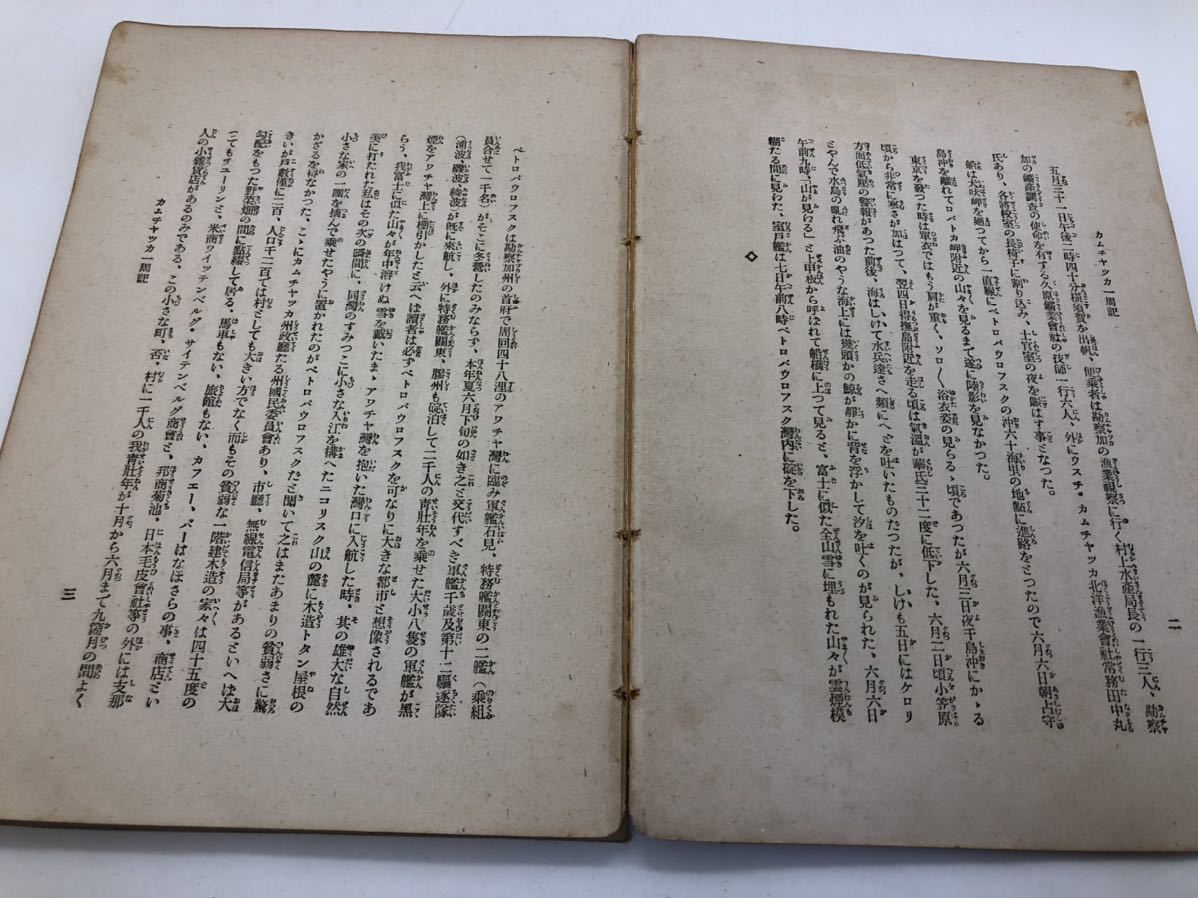 カムチャツカ一周記
二
五月三十一日午後二時四十分横須賀を出帆、便乘者は勘察加の漁業視察に行く村上水產局長の一行三人、勘察
加の鑛產調査の使命を有する久原鑛業會社の技師一行六人、外にウスチ・カムチャツカ北洋漁業會社常務田中丸
氏あり、各將校室の長椅子に割り込み、士官室の夜を賑はす事となつた。
船は犬吠岬を廻つてから一直線にペトロパウロフスクの沖六十海里の地點に進路をとつたので六月六日朝占守
島沖を離れてロパトカ岬附近の山々を見るまで遂に陸影を見なかつた。
東京を發つた時は單衣ではもう肩が重く、ソロ〳〵浴衣姿の見らるゝ頃であつたが六月三日夜千島沖にかゝる
頃から非常に寒さが加はつて、翌四日得撫島附近を走る頃は氣溫が華氏三十二度に低下した、六月二日頃小笠原
方面低氣壓の警報があつた前後、海はしけて水兵達さへ頻にへどを吐いたものだつたが、しけも五日にはケロリ
とやんで水鳥の亂れ飛ぶ油のやうな海上には幾頭かの鯨が靜かに背を浮かして汐を吐くのが見られた、六月六日
午前九時、「山が見える」と上甲板から呼ばれて船橋に上つて見ると、富士に似た全山雪に埋もれた山々が雲煙模
糊たる間に見えた、室戶艦は七日午前八時ペトロパウロフスク灣內に碇を下した。
◇
ペトロパウロフスクは勘察加州の首府で周回四十八浬のアワチャ灣に臨み軍艦石見、特務艦關東の二艦（乘組
員合せて一千名）がそこに冬營したのみならず、本年夏六月下旬の如き之と交代すべき軍艦千歳及第十二驅逐隊
（浦波、磯波、綾波）が旣に來航し、外に特務艦關東、膠州も碇泊して二千人の靑壯年を乘せた大小八隻の軍艦が黑
煙をアワチャ灣上に棚引かしたと云へは讀者は必ずペトロパウロフスクを可なりに大きな都市と想像されるであ
らう、我富士に似た山々が年中溶けぬ雪を戴いたまゝアワチャ灣を抱いた灣口に入航した時、其の雄大な自然
美に打たれた私はその次の瞬間に、同灣のすみつこに小さな入江を構へたニコリスク山の麓に木造トタン屋根の
小さな家の一團を摘んで乘せたやうに置かれたのがペトロパウロフスクだと聞いて之はまたあまりの貧弱さに驚
かざるを得なかつた、こゝにカムチャツカ州政廳たる州國民委員會あり、市廳、無線電信局等があるといへは大
きいが戶數僅に二百、人口千二百では村としても大きい方でなく而もその貧弱な一階建木造の家々は四十五度の
勾配をもつた野菜畑の間に點綴して居る、馬車もない、旅館もない、カフエー、バーはなほさらの事、商店とい
つてもチューリンと、米商ワイッテンベルグ・サイテンベルグ商會と、邦商菊池、日本毛皮會社等の外には支那
人の小雜貨店があるのみである、この小さな町、否、村に一千人の我靑壯年が十月から六月まで九箇月の間よく
カムチャツカ一周記
三